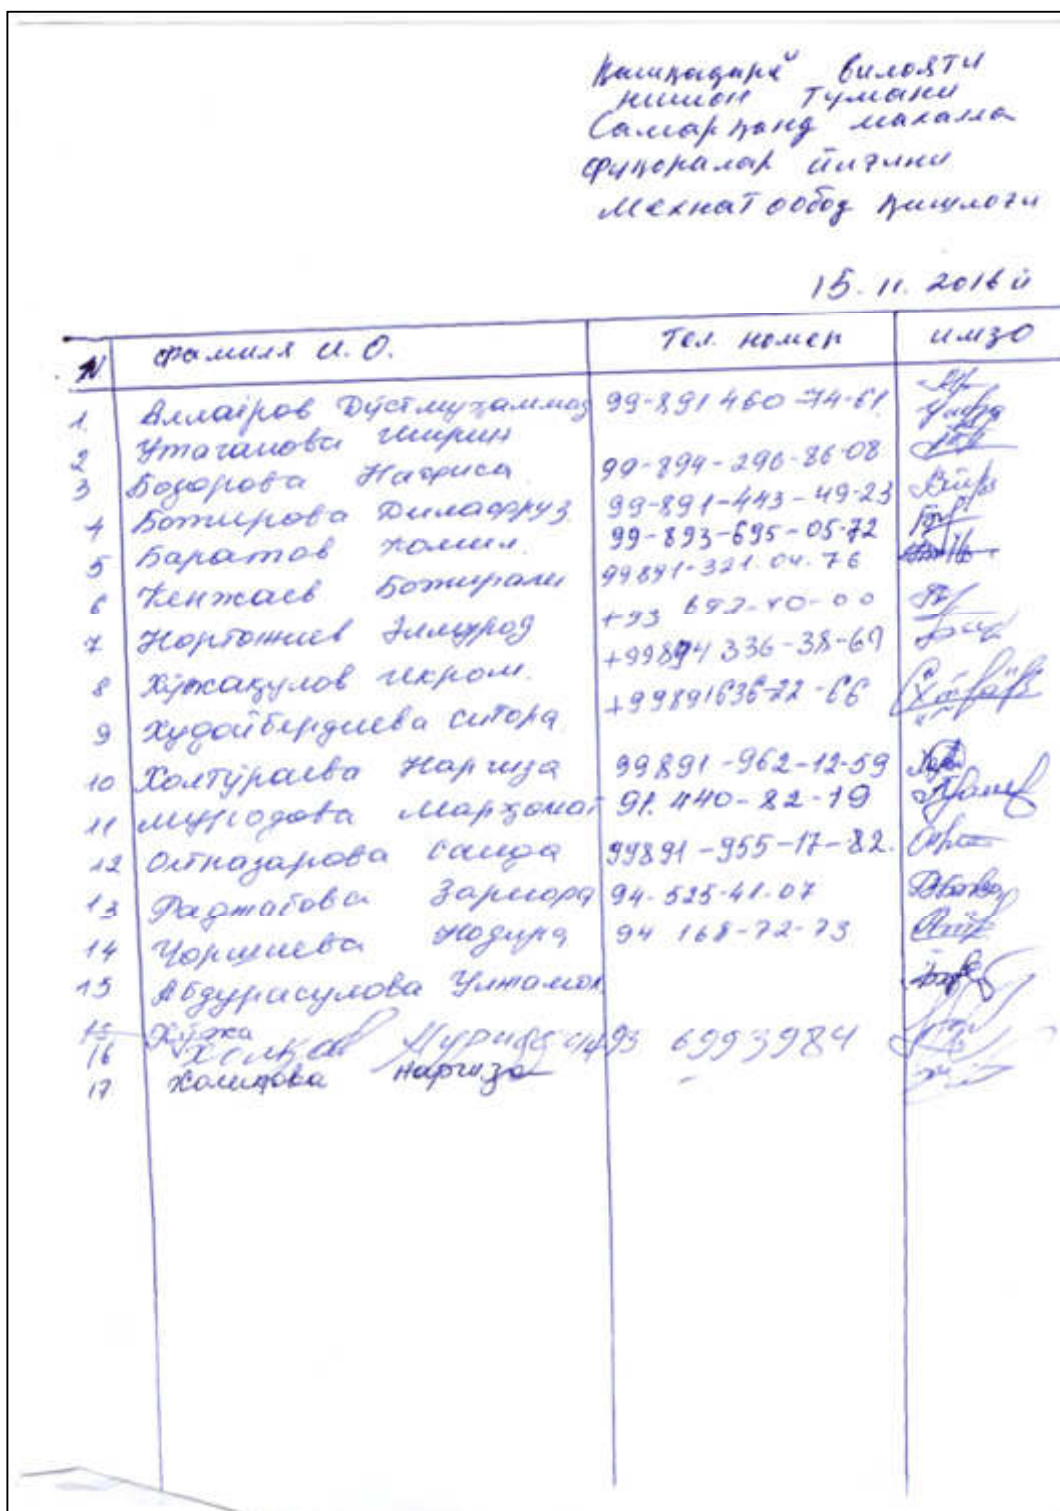 Қашқадарё вилояти
Нишон тумани
Самарқанд махалла
Фуқоралар йиғини
Мехнат обод қишлоғи
15.11.2016 й
N Фамиля И.О. Тел. номер имзо
1. Аллаёров Дўстмуҳаммад 99-891 460-74-61
2 Утаганова Ширин
3 Бозорова Нафиса 99-894-296-86-08
4 Ботирова Дилафруз 99-891-443-49-23
5 Баратов Комил. 99-893-695-05-72
6 Кенжаев Ботирали 99891-321.04.76
7 Нортожиев Элмурод +93 692-70-00
8 Хўжақулов Икром. +99894 336-38-69
9 Худойбердиева Ситора +99891636-22-66
10 Холтўраева Наргиза 99891-962-12-59
11 Муродова Марҳомат 91.440-82-19
12 Олтназарова Саида 99891-955-17-82.
13 Раджабова Зармора 94-525-41-07
14 Чоршиева Нодира 94 168-72-73
15 Абдурасулова Улмамон
15 Хўжа
16 93 6993984
17 Холиқова Наргиза -